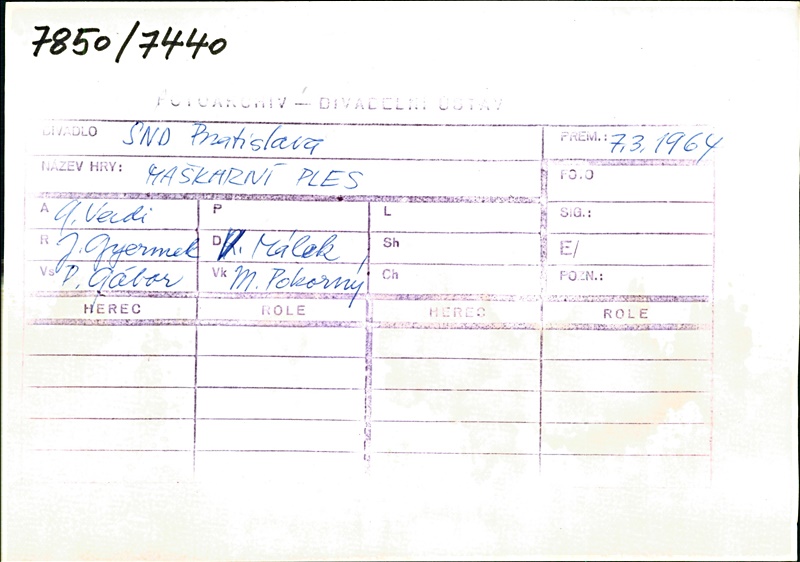 7850/7440
FOTOARCHIV — DIVADELNÍ ÚSTAV
DIVADLO SND Bratislava PREM.: 7.3.1964
NÁZEV HRY: MAŠKARNÍ PLES FO.O
A G. Verdi P L SIG.:
R J. Gyermek D K. Málek Sh E/
Vs P. Gábor Vk M. Pokorný Ch POZN.:
HEREC ROLE HEREC ROLE